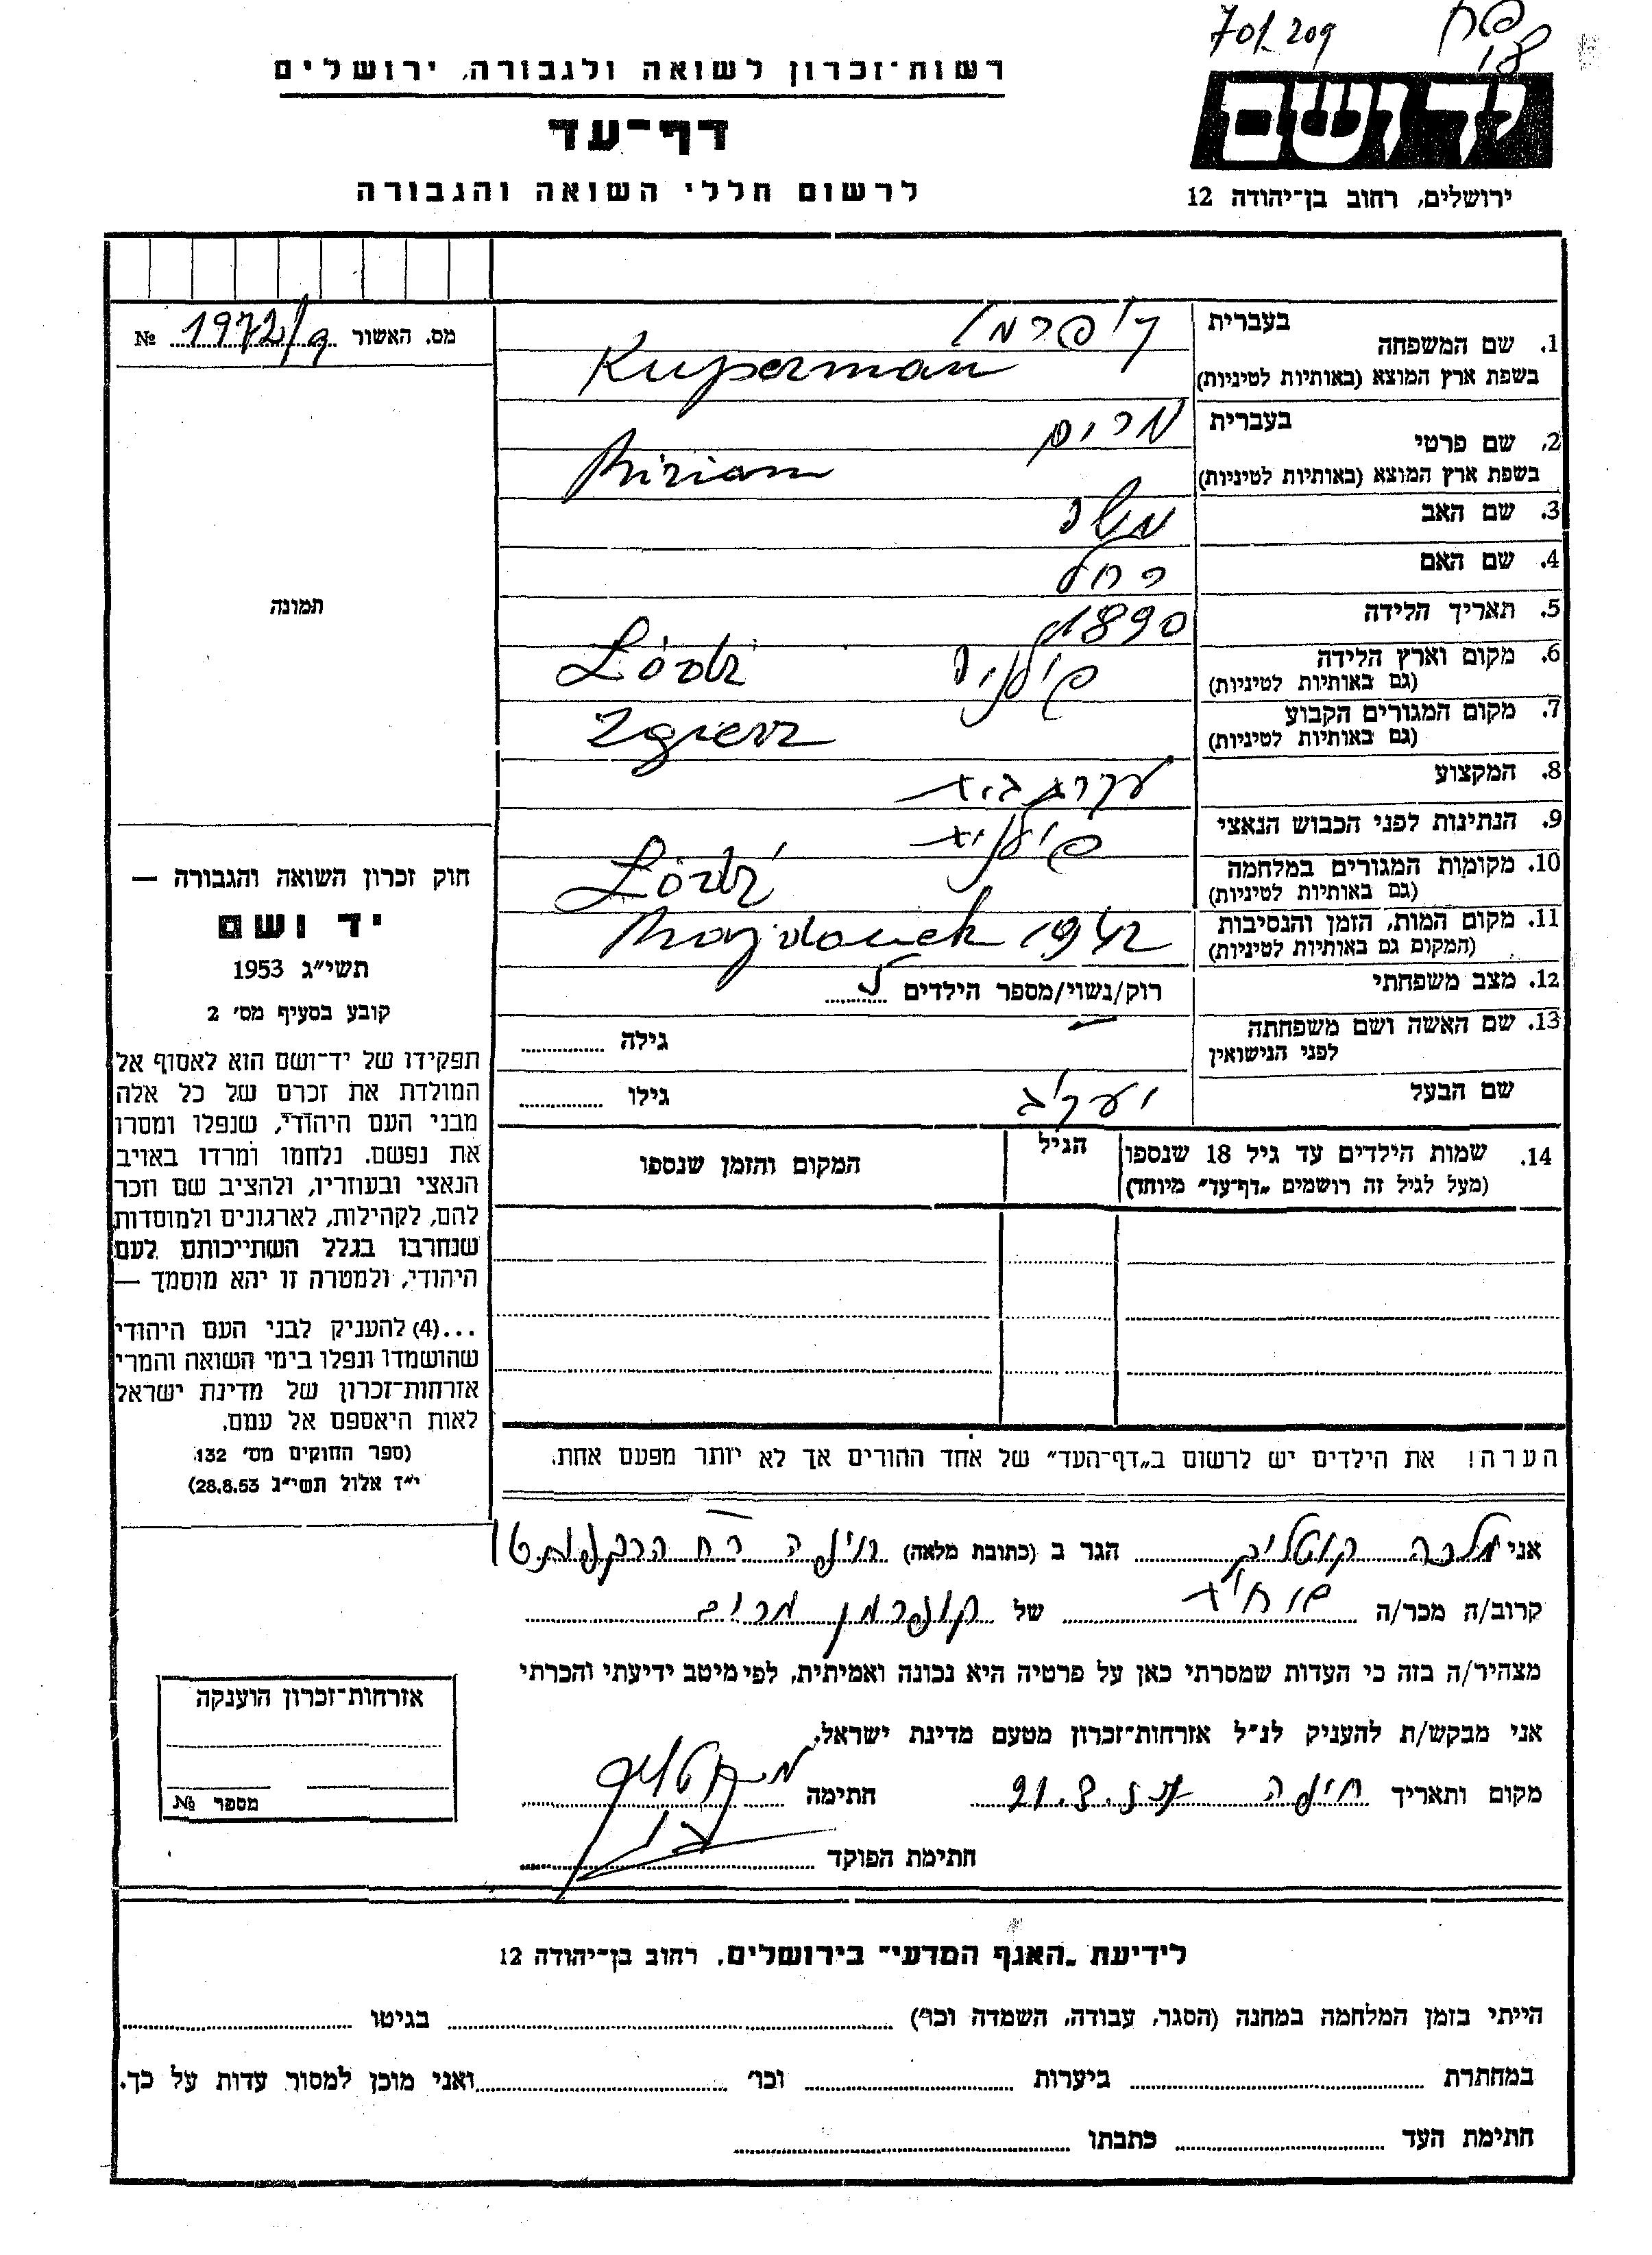 70/209
רשות־זכרון לשואה ולגבורה, ירושלים
דף־עד
לרשום חללי השואה והגבורה
יד ושם
ירושלים, רחוב בן־יהודה 12
מס. האשור 1972/ק №
תמונה
1. שם המשפחה
בעברית קופרמן
בשפת ארץ המוצא (באותיות לטיניות) Kuperman
2. שם פרטי
בעברית מרים
בשפת ארץ המוצא (באותיות לטיניות) Miriam
3. שם האב משה
4. שם האם רחל
5. תאריך הלידה 1890
6. מקום וארץ הלידה פולניה Łódź
(גם באותיות לטיניות)
7. מקום המגורים הקבוע Zgierz
(גם באותיות לטיניות)
8. המקצוע עקרת בית
9. הנתינות לפני הכבוש הנאצי פולנית
10. מקומות המגורים במלחמה Łódź
(גם באותיות לטיניות)
11. מקום המות, הזמן והנסיבות Majdanek 1942
(המקום גם באותיות לטיניות)
12. מצב משפחתי רוק/נשוי/מספר הילדים
13. שם האשה ושם משפחתה
לפני הנישואין
גילה
שם הבעל יעקב גילו
14. שמות הילדים עד גיל 18 שנספו
(מעל לגיל זה רושמים „דף־עד" מיוחד)
הגיל
המקום והזמן שנספו
חוק זכרון השואה והגבורה —
יד ושם
תשי״ג 1953
קובע בסעיף מס׳ 2
תפקידו של יד־ושם הוא לאסוף אל
המולדת את זכרם של כל אלה
מבני העם היהודי, שנפלו ומסרו
את נפשם, נלחמו ומרדו באויב
הנאצי ובעוזריו, ולהציב שם וזכר
להם, לקהילות, לארגונים ולמוסדות
שנחרבו בגלל השתייכותם לעם
היהודי, ולמטרה זו יהא מוסמך —
...(4) להעניק לבני העם היהודי
שהושמדו ונפלו בימי השואה והמרי
אזרחות־זכרון של מדינת ישראל
לאות היאספם אל עמם.
(ספר החוקים מס׳ 132,
י״ז אלול תשי״ג 28.8.53)
הערה! את הילדים יש לרשום ב„דף־העד" של אחד ההורים אך לא יותר מפעם אחת.
אני מלכה קוטליק הגר ב (כתובת מלאה) חיפה רח
קרוב/ה מכר/ה של קופרמן מרים
מצהיר/ה בזה כי העדות שמסרתי כאן על פרטיה היא נכונה ואמיתית, לפי מיטב ידיעתי והכרתי
אני מבקש/ת להעניק לנ״ל אזרחות־זכרון מטעם מדינת ישראל.
מקום ותאריך חיפה חתימה
חתימת הפוקד
אזרחות־זכרון הוענקה
מספר №
לידיעת „האגף המדעי" בירושלים, רחוב בן־יהודה 12
הייתי בזמן המלחמה במחנה (הסגר, עבודה, השמדה וכו׳) בגיטו
במחתרת ביערות וכו׳ ואני מוכן למסור עדות על כך.
חתימת העד כתבתו